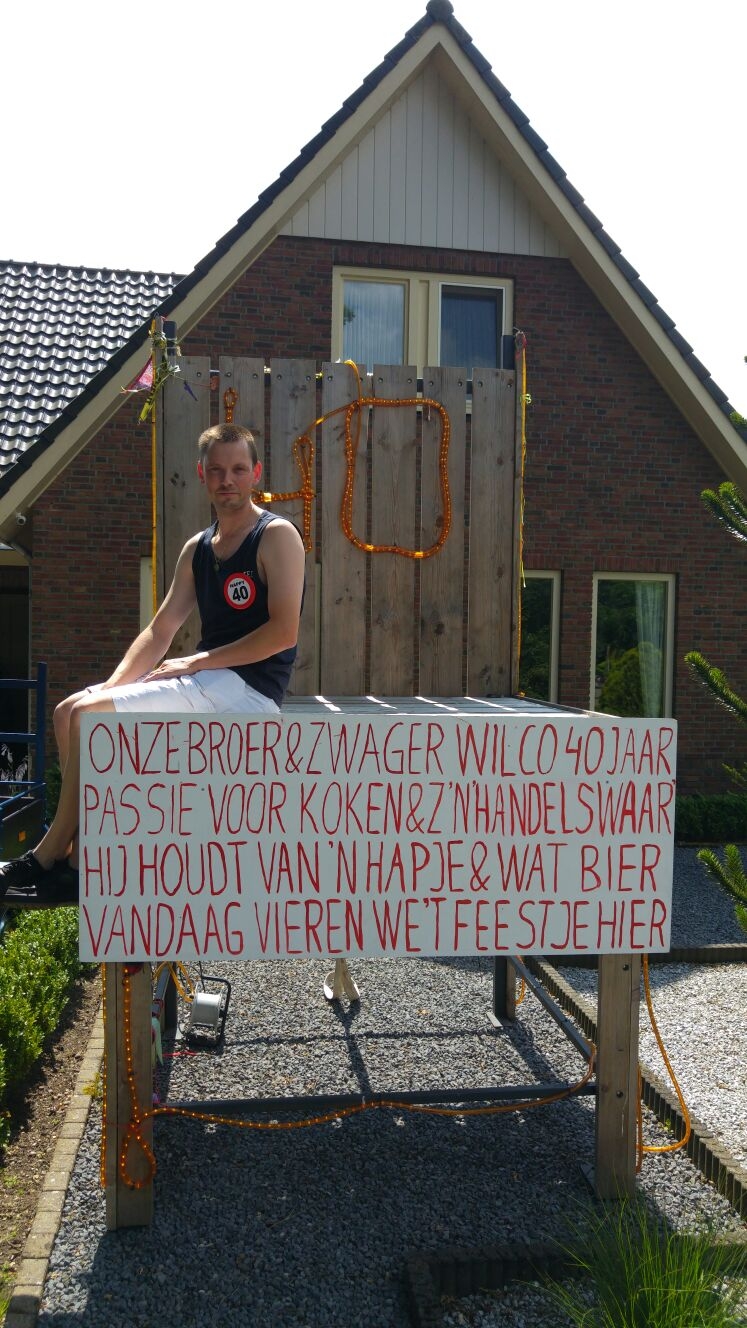 40
HAPPY
40
ONZE BROER & ZWAGER WILCO 40 JAAR
PASSIE VOOR KOKEN & Z'N 'HANDELSWAAR'
HIJ HOUDT VAN 'N HAPJE & WAT BIER
VANDAAG VIEREN WE 'T FEESTJE HIER